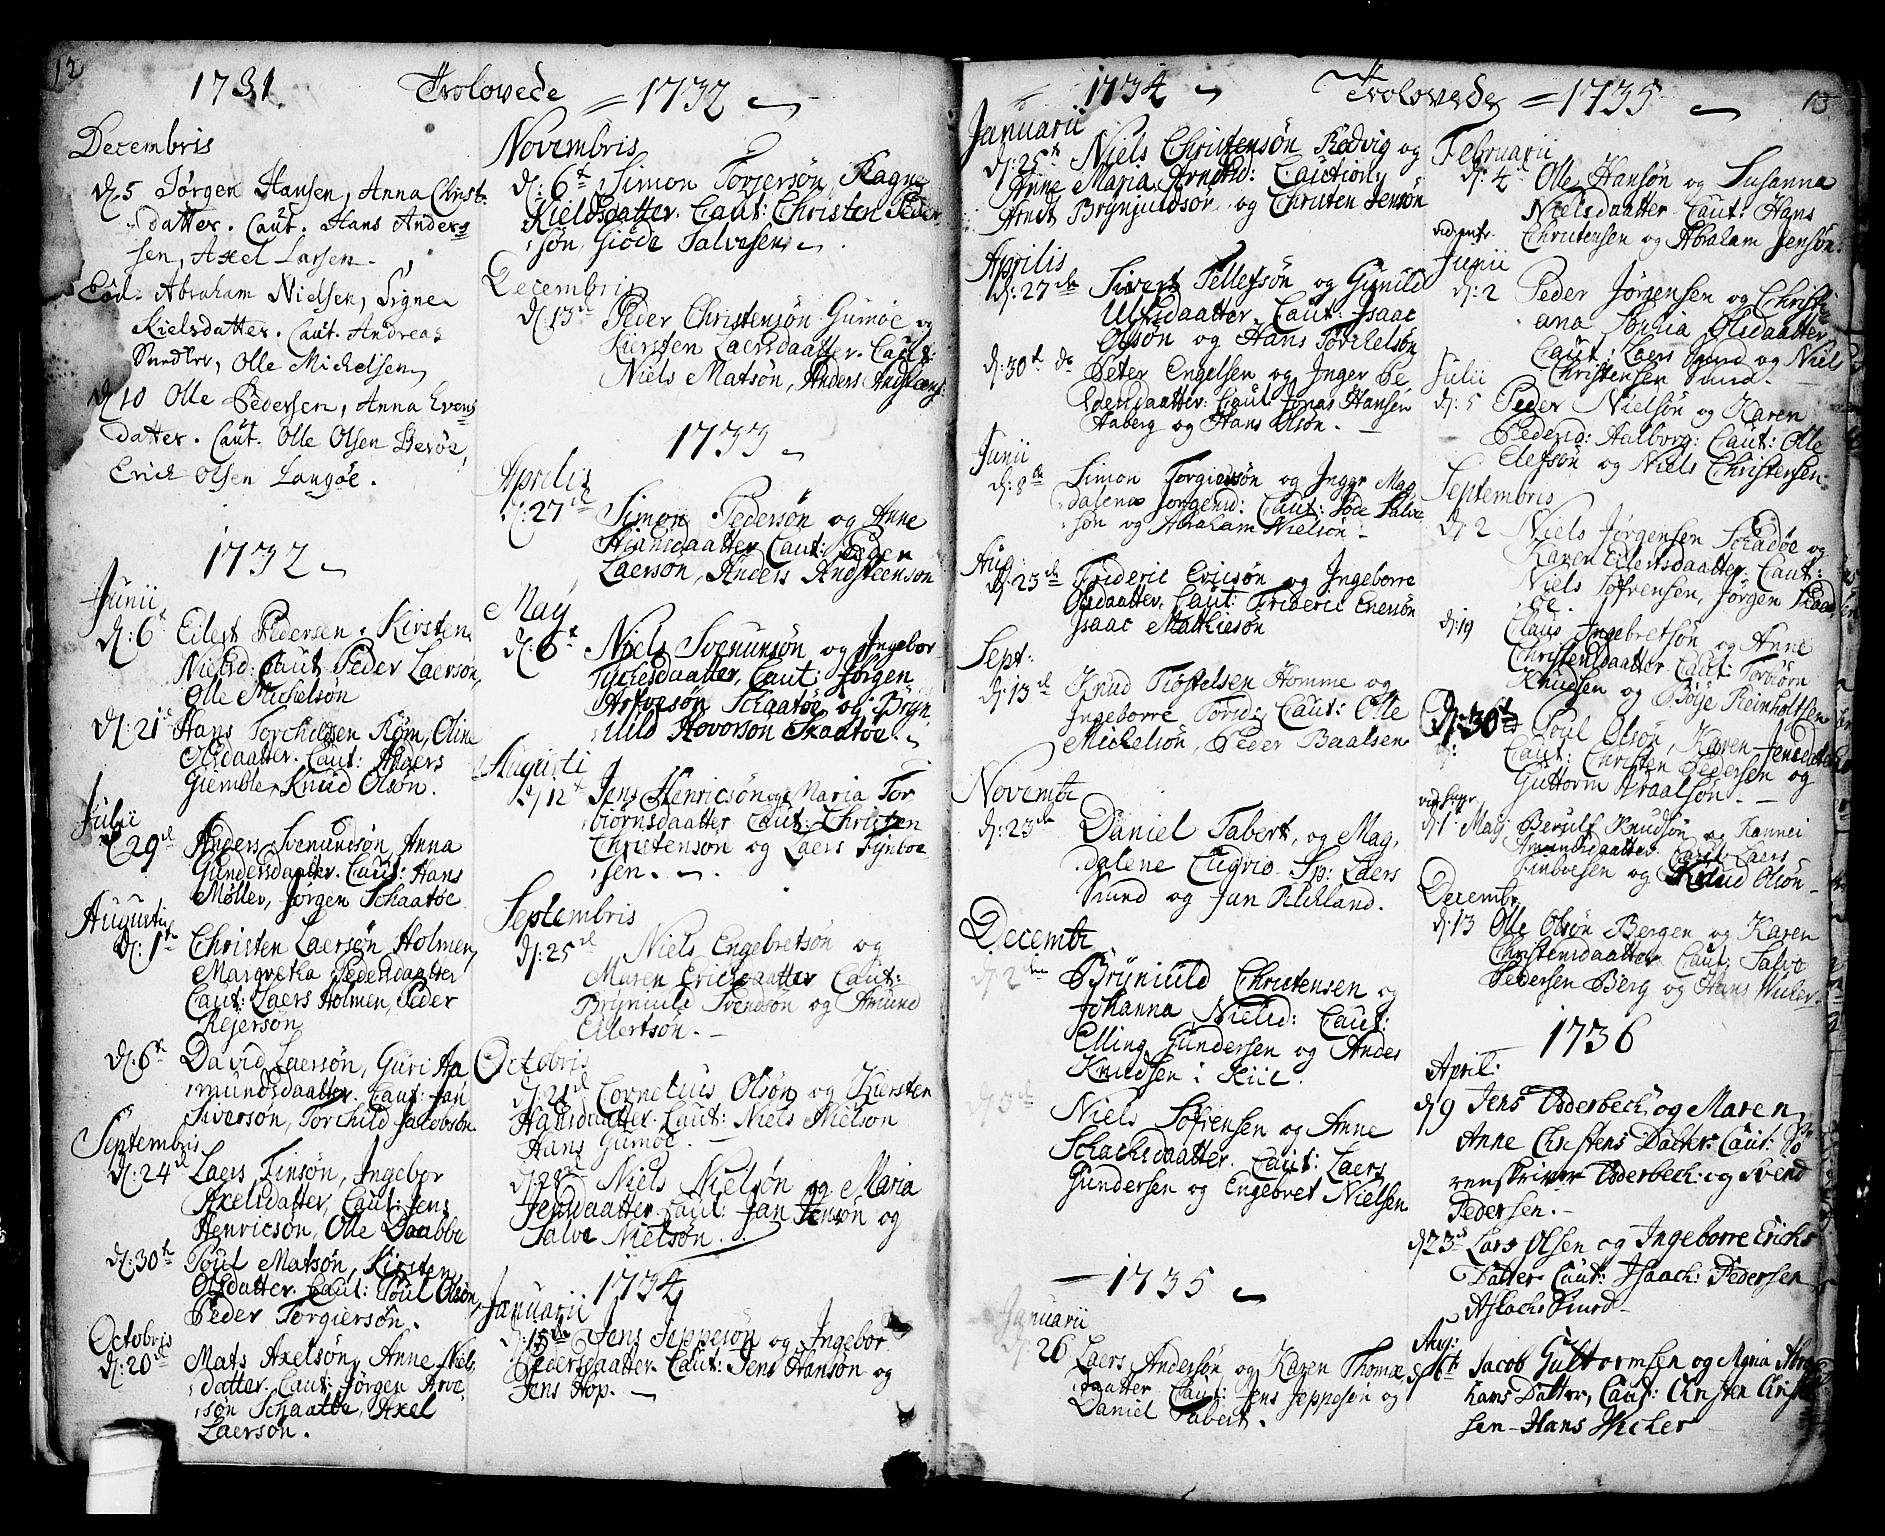 12
1731. Trolovede
Decembris
d. 5 Jørgen Hansen, Anna Christ:
datter. Caut. Hans Anders
sen, Axel Larsen.
Eod. Abraham Nielsen, Signe
Kielsdatter. Caut. Andreas
Olle Michelsen
d. 10 Olle Pedersen, Anna Evens
datter. Caut. Olle Olsen Berøe,
Erich Olsen Langøe.
1732
Junii
d: 6t Eilert Pedersen, Kirsten
Nielsd. Caut Peder Laersøn,
Olle Michelsøn
d: 21 Hans Torchildsen Røm, Oline
Olsdaatter. Caut:
Giemble, Knud Olsøn.
Julii
d 29de Anders Svenundsøn Anna
Gundersdaatter. Caut: Hans
Møller, Jørgen Schaatøe
Augusti
d: 1te Christen Laersøn Holmen,
Margretha Pedersdaatter
Caut: Laers Holmen, Peder
Rejersøn
d: 6t David Laersøn, Guri Aa
mundsdaatter. Caut: Jan
Siversøn, Torchild Jacobsøn
Septembris
d: 24de Laers Finsøn, Ingebor
Axelsdatter, Caut: Jens
Henricsøn, Olle Daabbe
d: 30te Poul Matsøn, Kirsten
Olsdatter. Caut: Poul Olsøn,
Peder Torgiersøn.
Octobris
d: 20de Mats Axelsøn, Anne Niels
datter. Caut: Jørgen Arve
søn Schaatøe, Axel
Laersøn.
1732
Novembris
d: 6t Simon Torjersøn, Ragne
Kieldsdatter. Caut: Christen Peder
søn, Giøde Salvesen.
Decembris
d. 13de Peder Christensøn Gumøe og
Kiersten Laersdaatter. Caut:
Niels Matsøn, Anders Andstens:
1733
Aprilis
d: 27de Simon Pedersøn og Anne
Hansdaatter Caut: Peder
Laersøn, Anders Andsteensøn
Maij
d: 6t Niels Svenunsøn og Ingebor
Tychesdaatter, Caut: Jørgen
Arfvesøn Schaatøe og Bryn
ulld Hovorsøn Skaatøe.
Augusti
d 12t Jens Henricsøn og Maria Tor
biørnsdaatter Caut: Christen
Christensøn og Laers Finboe
sen.
Septembris
d: 25de Niels Engebretsøn og
Maren Ericsdaatter Caut:
Brynuld Svendsøn og Amund
Eilertsøn.
Octobris
d: 21de Cornelius Olsøn og Kiersten
Hansdaatter. Caut: Niels Nielsøn
Hans Gumøe.
d: 28de Niels Nielsøn og Maria
Jensdaatter. Caut: Jan Jensøn og
Salve Nielsøn.
1734
Januarii
d: 15de Jens Jeppesøn og Ingebor
Pedersdaatter. Caut: Jens Hansøn og
Jens Hop.
1734 Trolovede 13
Januarii
d: 25t Niels Christensøn Rødvig og
Anne Maria Arndtsd: Caution:
Arndt Brynjuldsøn og Christen Jensøn
Aprilis
d: 27de Sivert Tellefsøn og Gunild
Ulfsdaatter. Caut: Isaac
Olsøn og Hans Torchelsøn
d: 30t do Peter Engelsen og Inger Pe
dersdaatter: Caut Jonas Hansen
Haberg og Hans Olsøn.
Junii
d: 8de Simon Torgiersøn og Inggr Mag
dalena Jørgensd: Caut: Jøde Salve
søn og Abraham Nielsøn
Aug:
d: 23de Frideric Ericsøn og Ingeborre
Olsdaatter. Caut: Frideric Enersøn
Isaac Mathiesøn
Sept:
d: 13de Knud Trøstelsen Homme og
Ingeborre Torisd: Caut: Olle
Michelsøn, Peder Baalsen
Novembr
d: 23de Daniel Tabert, og Mag,
dalene Ludvig Sp: Laers
Smed og Jan
Decembr
d 2den Brynjuld Christensen og
Johanna Nielsd: Caut:
Elling Gundersen og Anders
Knudsen i Kiil.
d 3de Niels Søfrensen og Anne
Schachsdaatter. Caut: Laers
Gundersen og Engebret Nielsen
1735
Januarii
d: 26 Laers Andersøn og Karen Thomæ
daatter Caut: Jens Jeppesen og
Daniel Tabert.
1735
Februarii
d: 4 Olle Hansøn og Susanna
Nielsdaatter Caut: Hans
Christensen og Abraham Jensøn.
Junii
d: 2 Peder Jørgensen og Christi
ana Sophia Olsdaatter
Caut: Laers Smed og Niels
Christensen Smed.
Julii
d: 5 Peder Nielsøn og Karen
Pedersd: Aalborg: Caut: Olle
Elefsøn og Niels Christensen:
Septembris
d. 2 Niels Jørgensen Schadøe og
Karen Eilertsdaatter. Caut:
Niels Søfrensen, Jørgen Skaad
øe.
d: 19 Claus Ingebretsøn og Anne
Christensdaatter Caut: Torbiørn
Knudsen og Børje Reinholtsen
d: 30t Poul Olsøn, Karen Jensdatter
Caut: Christen Pedersen og
Guttorm Braalsøn.
d: 1 Maij Berulf Knudsøn og Rannei
Amundsdaatter Caut: Laers
Finboesen og Knud Olsøn
Decembr
d: 13 Olle Olsøn Bergen og Karen
Christensdaatter Caut: Salve
Pedersen Berg og Hans Wicher.
1736
April:
d 9 Jens Osderbech og Maren
Anne Christens Datter: Caut: So
renskriver Osderbech og Svend
Pedersen.
d 23de Lars Olsen og Ingeborre Erichs
Datter Caut: Isaach Pedersen
Aslach Smed
Aug:
d 16t Jacob Guttormsen og Maria Abra
hams Datter, Caut: Christen Christen
sen Hans Wicher